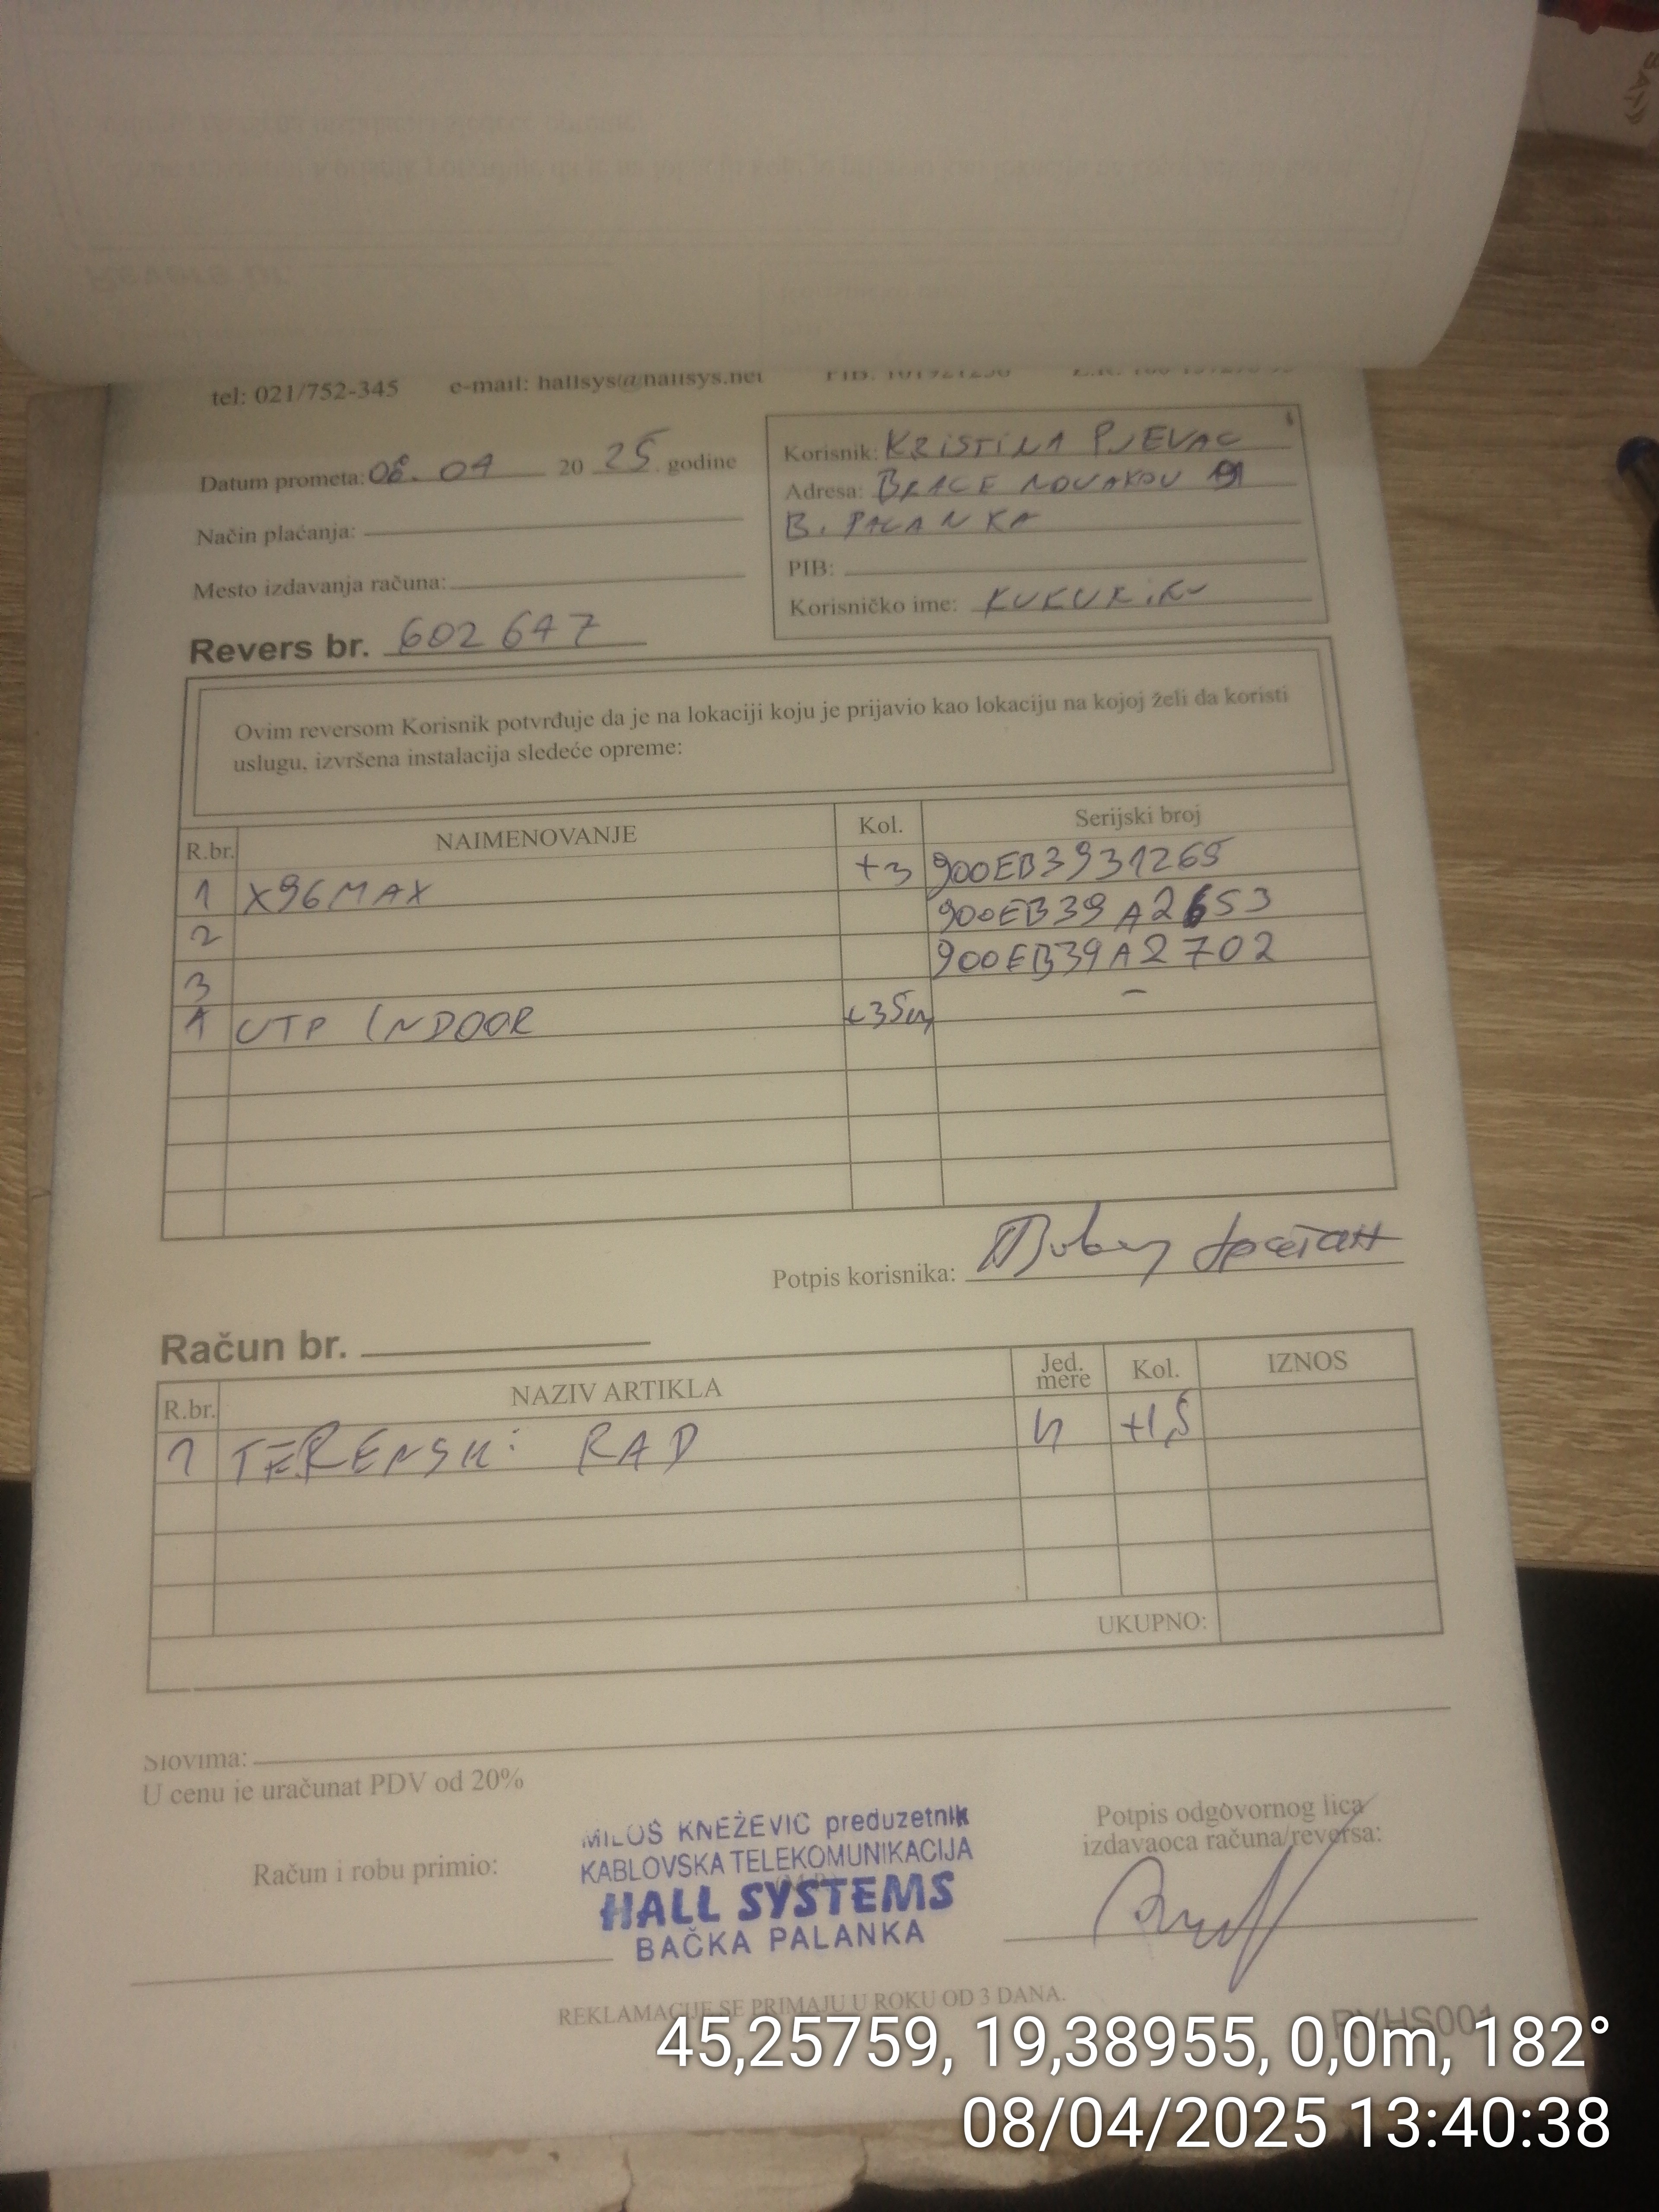 tel: 021/752-345 e-mail: hallsys@hallsys.net PIB: 101921256
Datum prometa: 08. 04 20 25 godine
Način plaćanja:
Mesto izdavanja računa:
Korisnik: KRISTINA PJEVAC
Adresa: BRAĆE NOVAKOV
B. PALANKA
PIB:
Korisničko ime: KUKURIKU
Revers br. 602647
Ovim reversom Korisnik potvrđuje da je na lokaciji koju je prijavio kao lokaciju na kojoj želi da koristi
uslugu, izvršena instalacija sledeće opreme:
R.br. NAIMENOVANJE Kol. Serijski broj
1 X96MAX +3 900EB3931265
2 900EB39A2653
3 900EB39A2702
1 UTP INDOOR +35m -
Potpis korisnika:
Račun br.
R.br. NAZIV ARTIKLA Jed. mere Kol. IZNOS
1 TERENSKi RAD h +1,5
UKUPNO:
Slovima:
U cenu je uračunat PDV od 20%
Račun i robu primio:
MILOŠ KNEŽEVIĆ preduzetnik
KABLOVSKA TELEKOMUNIKACIJA
HALL SYSTEMS
BAČKA PALANKA
Potpis odgovornog lica
izdavaoca računa/reversa:
REKLAMACIJE SE PRIMAJU U ROKU OD 3 DANA.
RVHS001
45,25759, 19,38955, 0,0m, 182°
08/04/2025 13:40:38